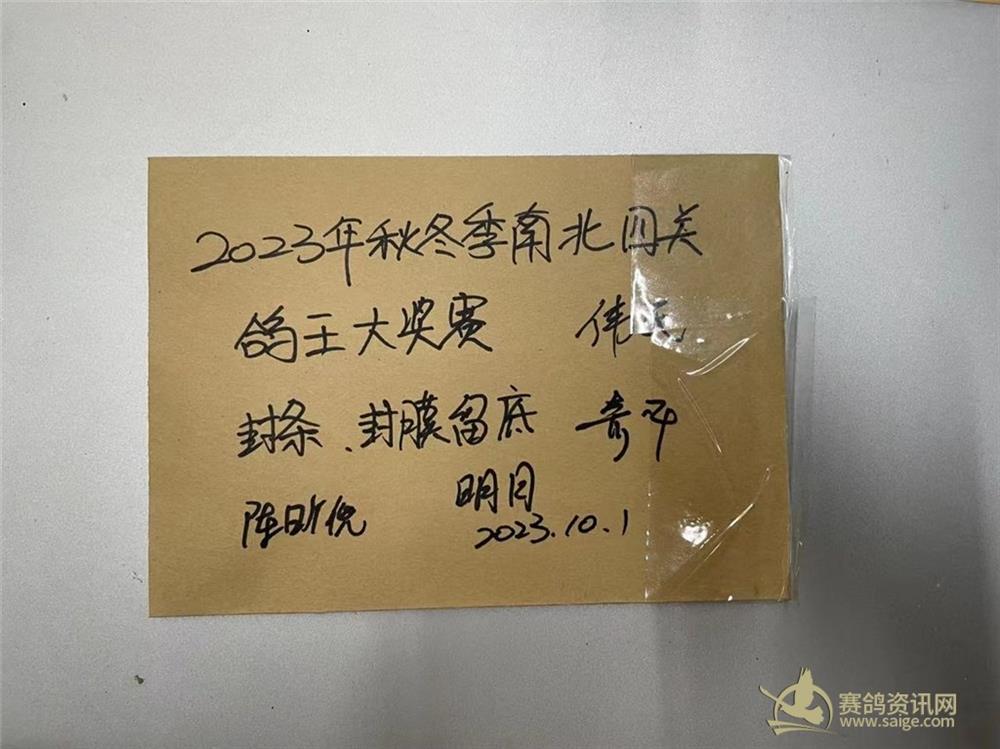 2023年秋冬季南北四关
鸽王大奖赛
封条、封膜留底
陈昕倪 明月
2023.10.1
赛鸽资讯网
www.saige.com